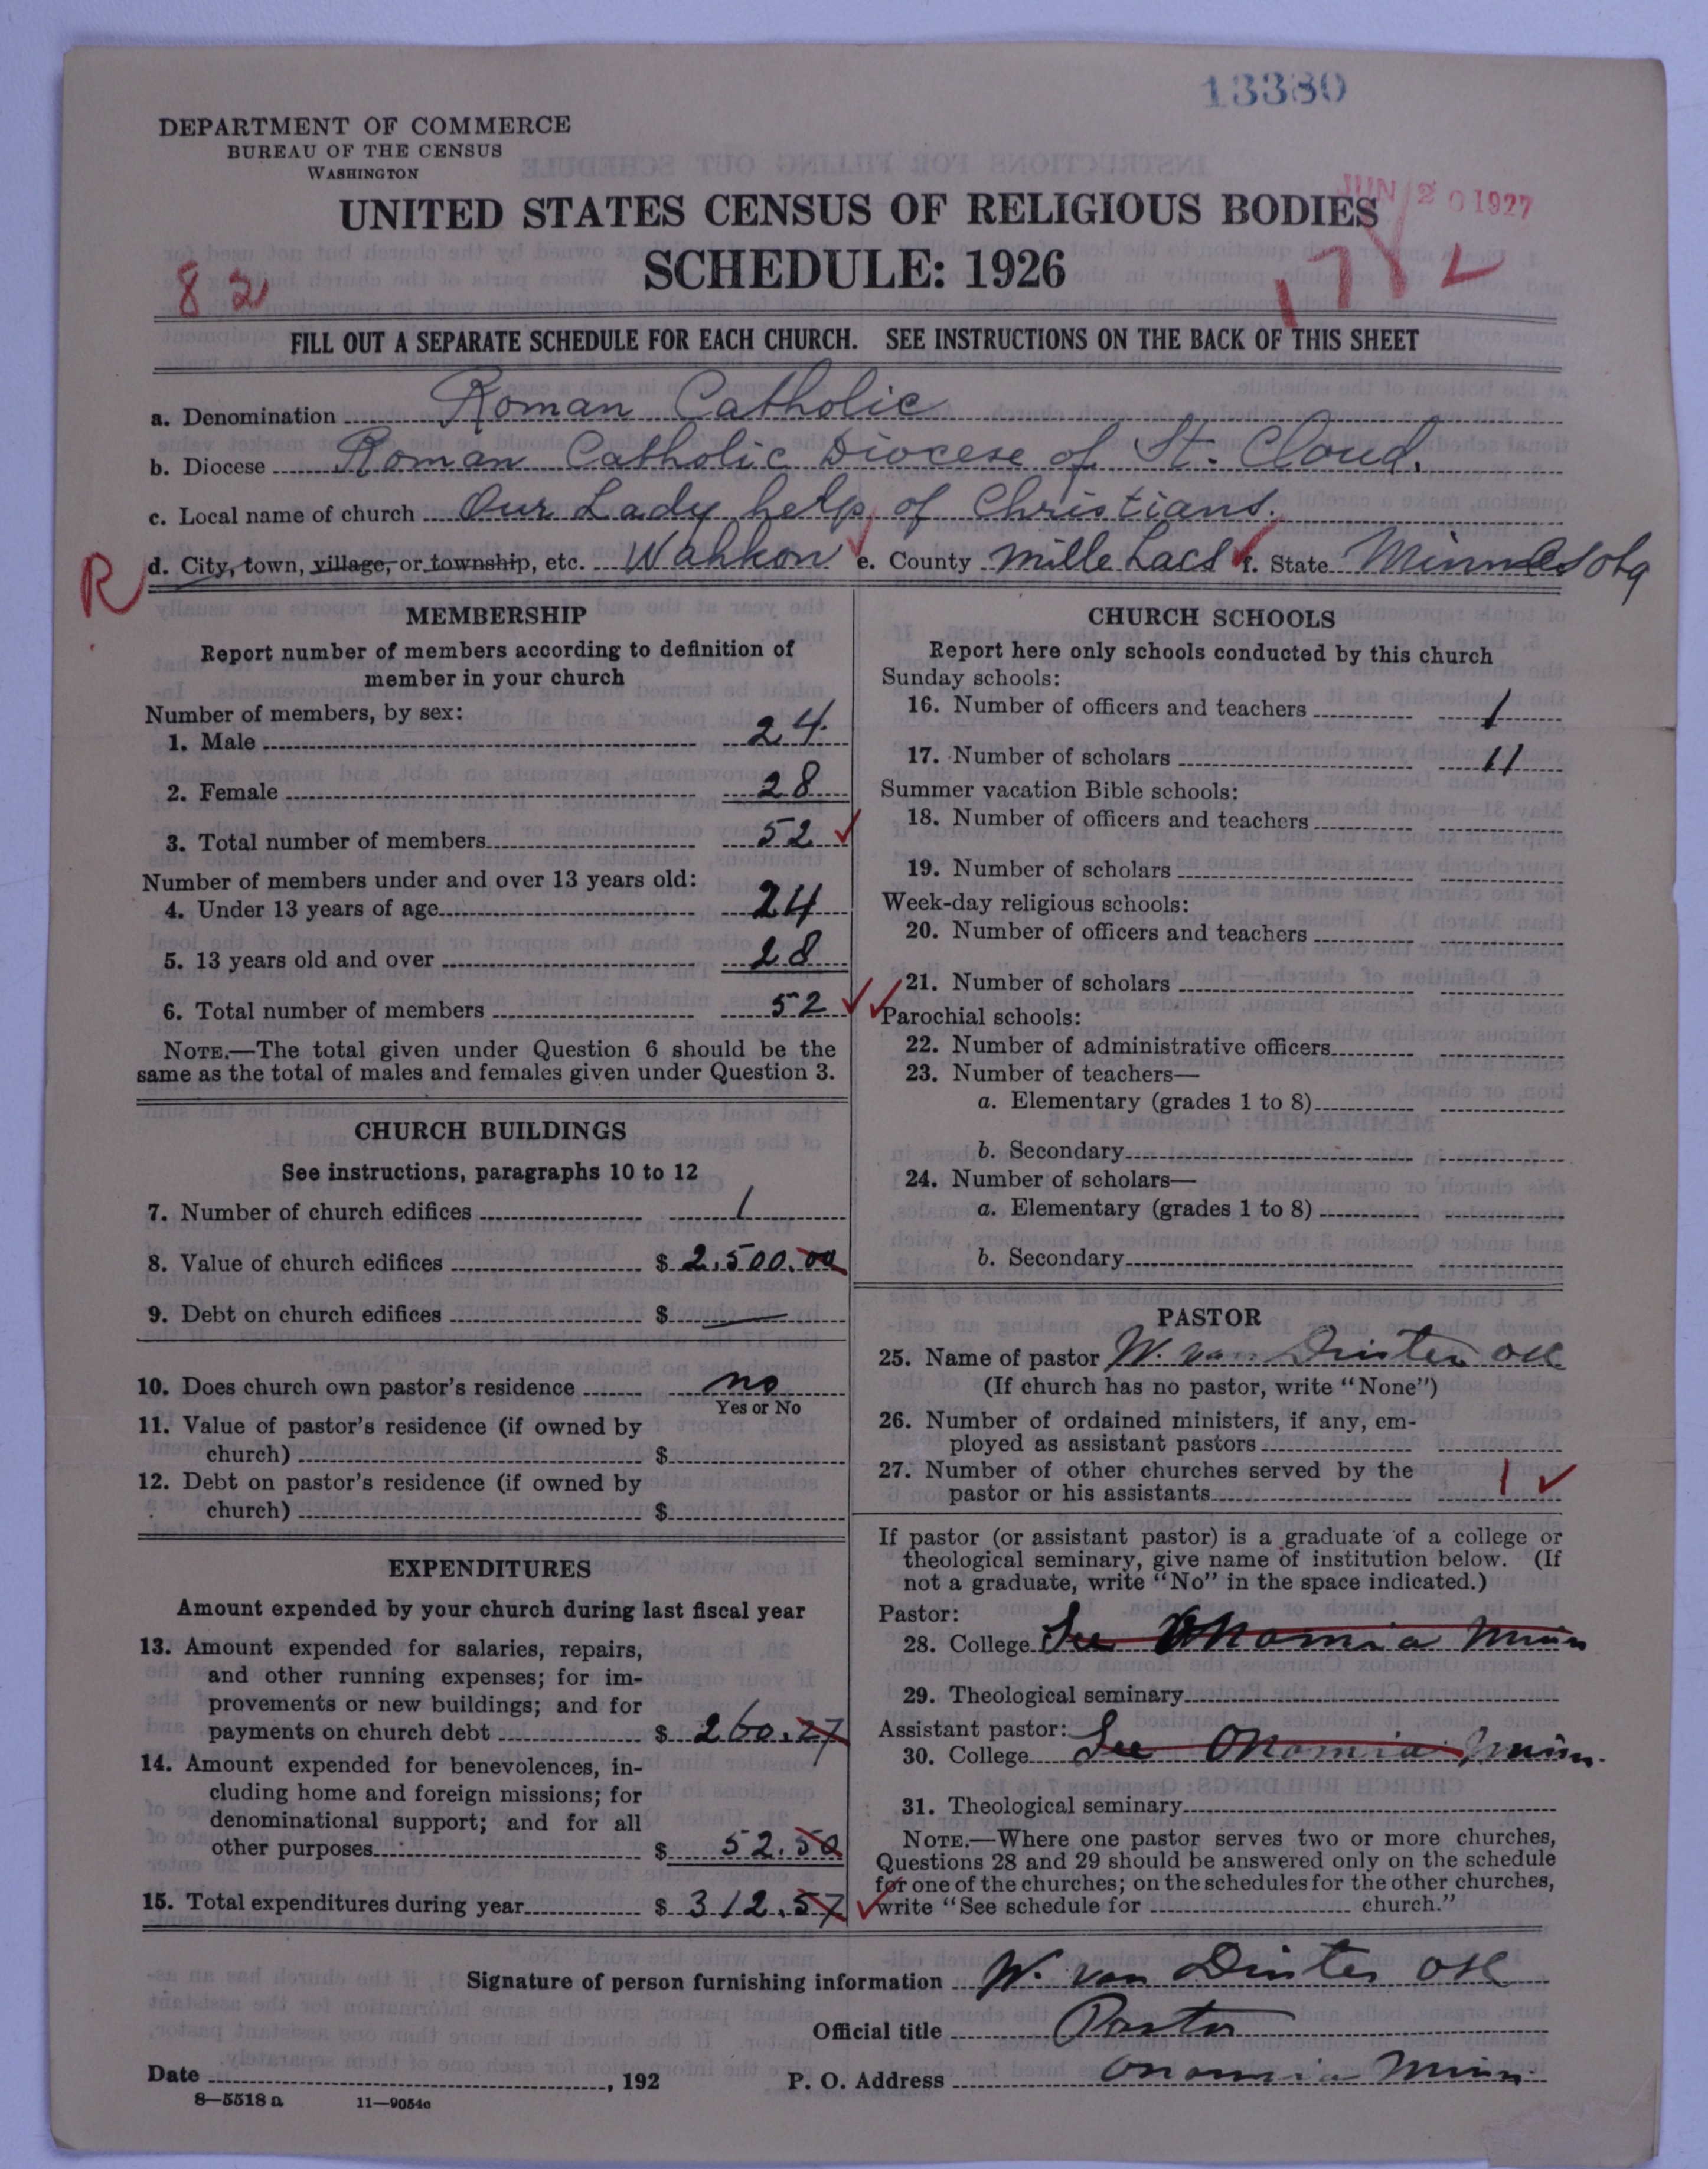 13380
DEPARTMENT OF COMMERCE
BUREAU OF THE CENSUS
WASHINGTON
UNITED STATES CENSUS OF RELIGIOUS BODIES
JUN 20 1927
SCHEDULE: 1926
82
FILL OUT A SEPARATE SCHEDULE FOR EACH CHURCH. SEE INSTRUCTIONS ON THE BACK OF THIS SHEET
a. Denomination Roman Catholic
b. Diocese Roman Catholic Diocese of St. Cloud.
c. Local name of church Our Lady help of Christians.
R d. City, town, village, or township, etc. Wahkon e. County Mille Lacs f. State Minnesota
MEMBERSHIP
Report number of members according to definition of
member in your church
Number of members, by sex:
1. Male 24
2. Female 28
3. Total number of members 52
Number of members under and over 13 years old:
4. Under 13 years of age 24
5. 13 years old and over 28
6. Total number of members 52
NOTE.—The total given under Question 6 should be the
same as the total of males and females given under Question 3.
CHURCH BUILDINGS
See instructions, paragraphs 10 to 12
7. Number of church edifices 1
8. Value of church edifices $ 2,500.00
9. Debt on church edifices $ —
10. Does church own pastor's residence no
Yes or No
11. Value of pastor's residence (if owned by
church) $
12. Debt on pastor's residence (if owned by
church) $
EXPENDITURES
Amount expended by your church during last fiscal year
13. Amount expended for salaries, repairs,
and other running expenses; for im-
provements or new buildings; and for
payments on church debt $ 260.27
14. Amount expended for benevolences, in-
cluding home and foreign missions; for
denominational support; and for all
other purposes $ 52.50
15. Total expenditures during year $ 312.57
CHURCH SCHOOLS
Report here only schools conducted by this church
Sunday schools:
16. Number of officers and teachers 1
17. Number of scholars 11
Summer vacation Bible schools:
18. Number of officers and teachers
19. Number of scholars
Week-day religious schools:
20. Number of officers and teachers
21. Number of scholars
Parochial schools:
22. Number of administrative officers
23. Number of teachers—
a. Elementary (grades 1 to 8)
b. Secondary
24. Number of scholars—
a. Elementary (grades 1 to 8)
b. Secondary
PASTOR
25. Name of pastor W. van Dinter OSC
(If church has no pastor, write "None")
26. Number of ordained ministers, if any, em-
ployed as assistant pastors
27. Number of other churches served by the
pastor or his assistants 1
If pastor (or assistant pastor) is a graduate of a college or
theological seminary, give name of institution below. (If
not a graduate, write "No" in the space indicated.)
Pastor:
28. College See Onamia Minn
29. Theological seminary
Assistant pastor:
30. College See Onamia Minn.
31. Theological seminary
NOTE.—Where one pastor serves two or more churches,
Questions 28 and 29 should be answered only on the schedule
for one of the churches; on the schedules for the other churches,
write "See schedule for church."
Signature of person furnishing information W. van Dinter OSC
Official title Pastor
Date , 192 P. O. Address Onamia Minn.
8—5518 a 11—9054c